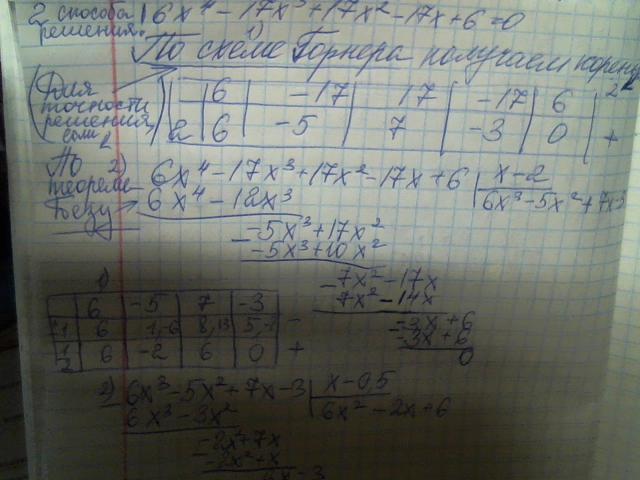 2 способа
решения.
6x⁴-17x³+17x²-17x+6=0
1)
По схеме Горнера получаем корень
2
(Для
точности
решения,
сами)
6 | -17 | 17 | -17 | 6
2 | 6 | -5 | 7 | -3 | 0 | +
По 2)
теореме
Безу
6x⁴-17x³+17x²-17x+6 | x-2
6x⁴-12x³
6x³-5x²+7x-3
-5x³+17x²
-5x³+10x²
7x²-17x
7x²-14x
-3x+6
-3x+6
0
1)
6 | -5 | 7 | -3
6 | 1,-6 | 8,13 | -
1/2 | 6 | -2 | 6 | 0 | +
2) 6x³-5x²+7x-3 | x-0,5
6x³-3x²
6x²-2x+6
-2x²+7x
-2x²+x
6x-3